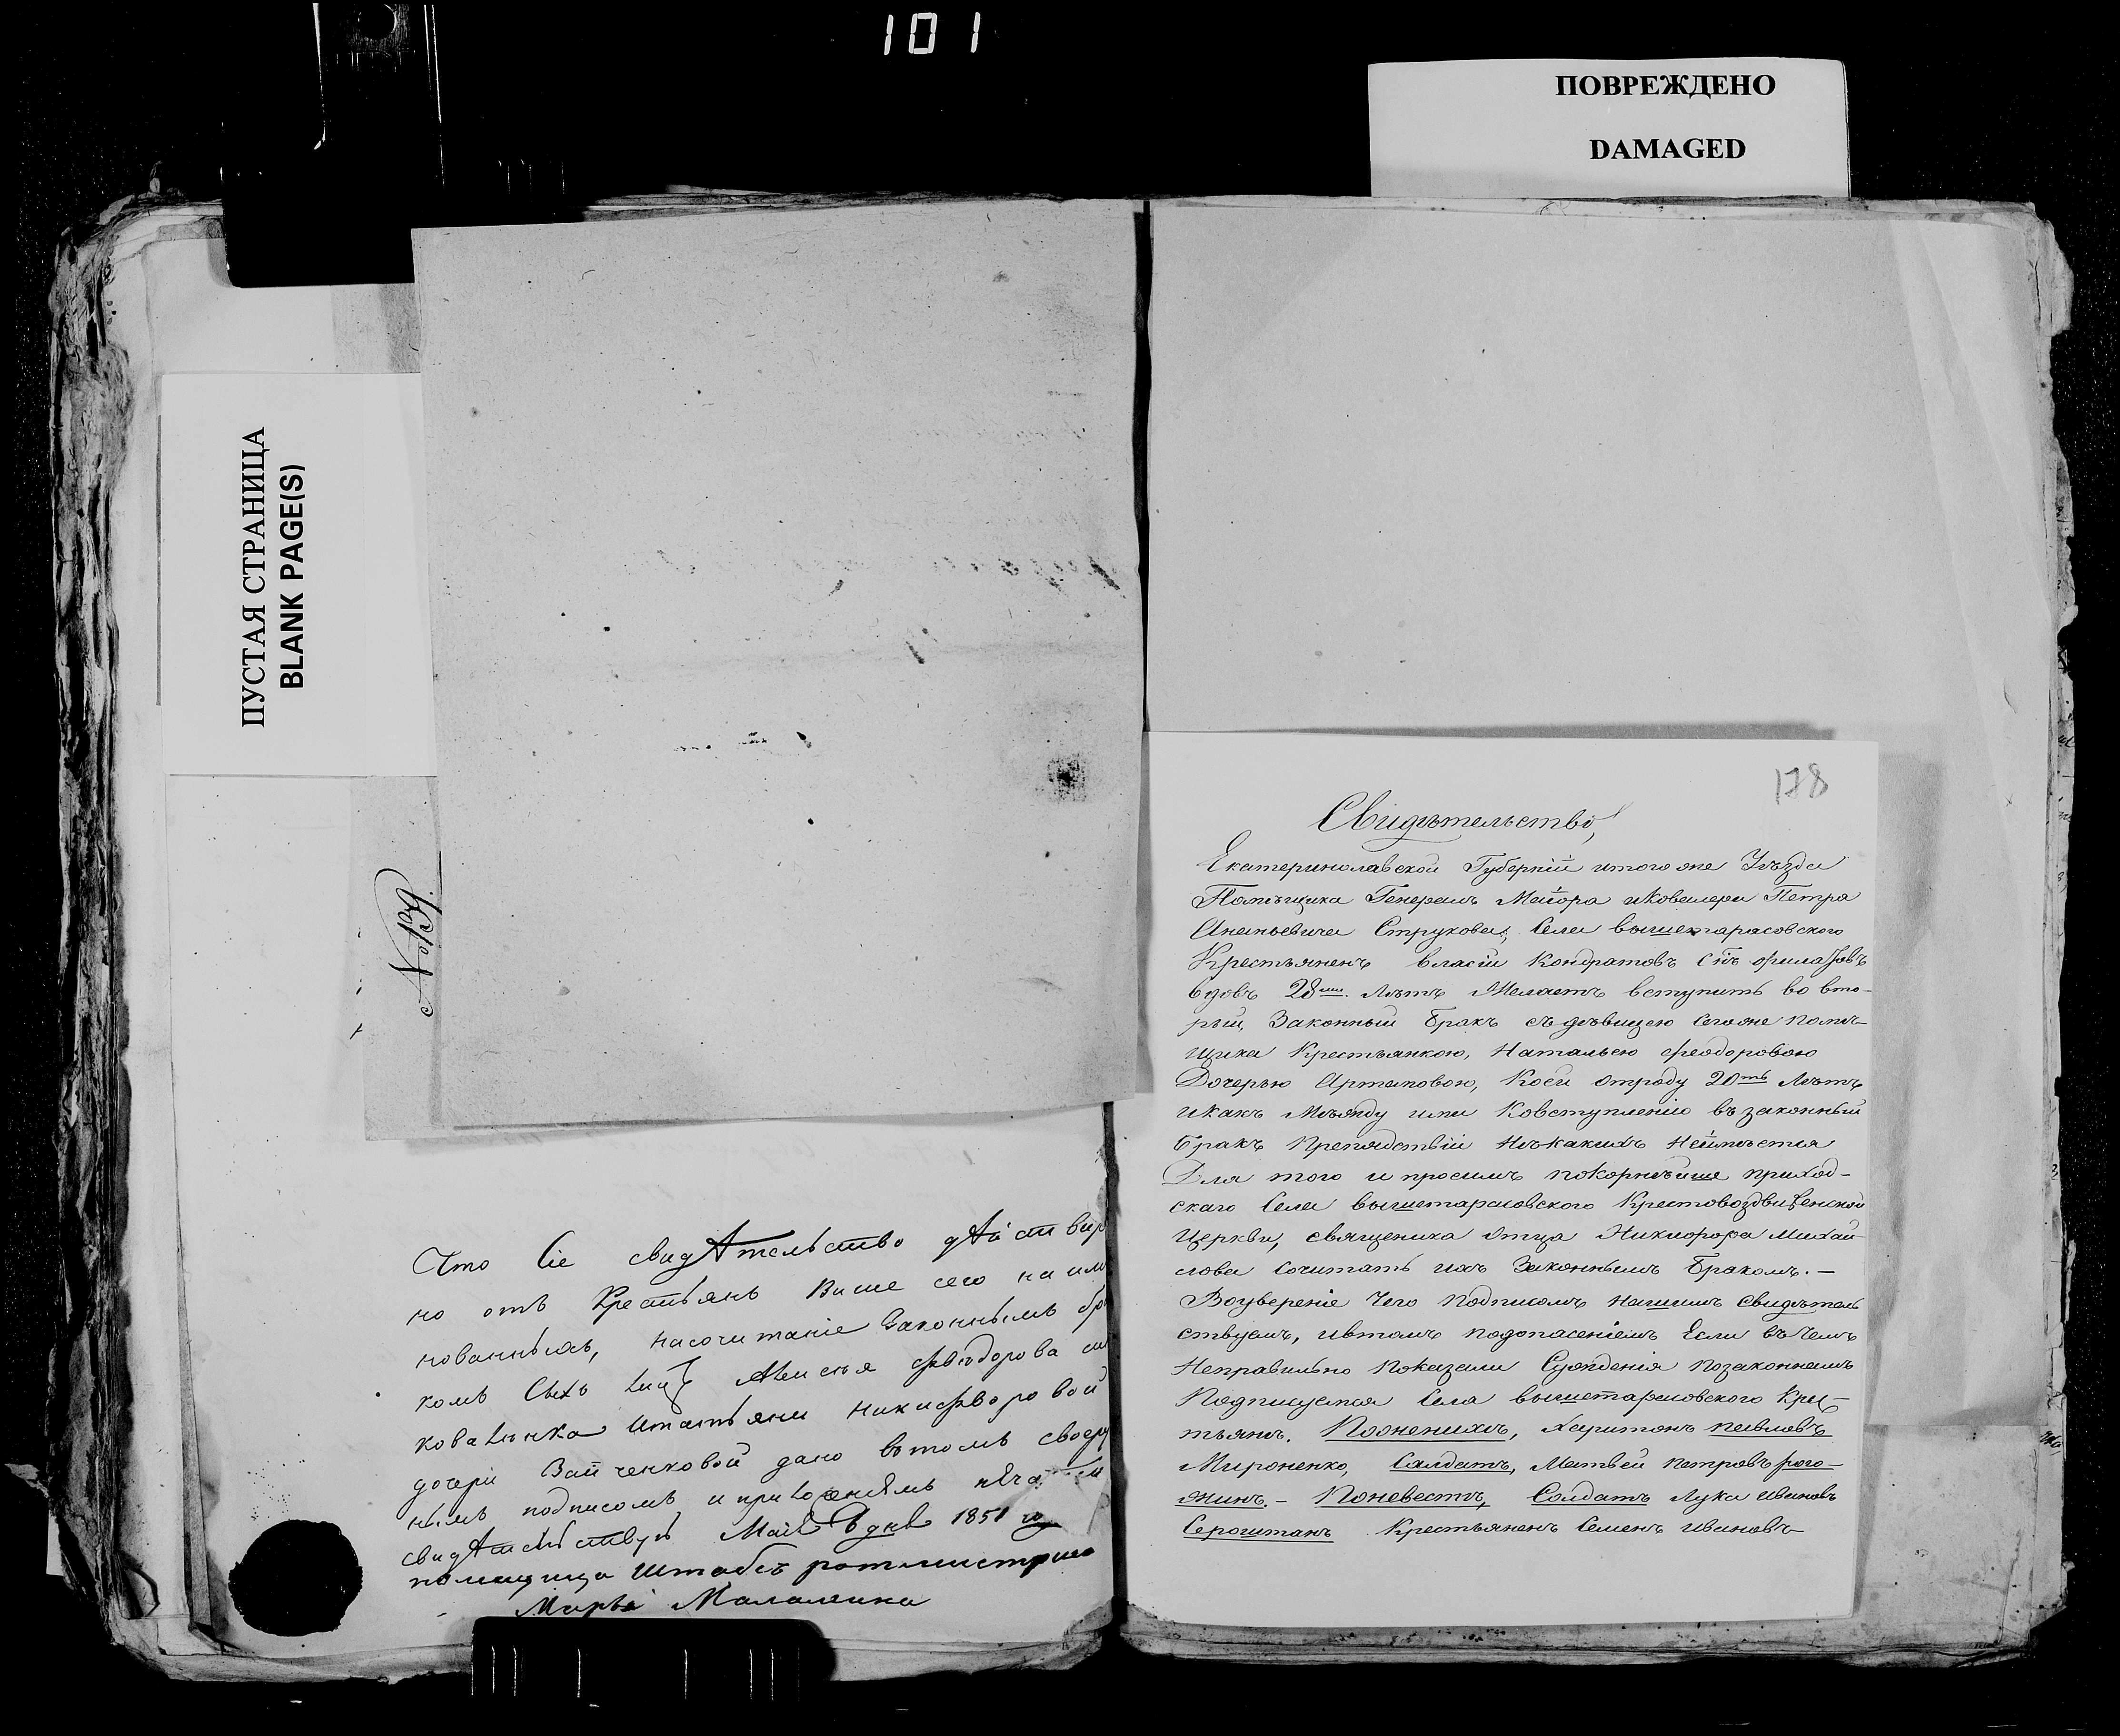 101
ПОВРЕЖДЕНО
DAMAGED
ПУСТАЯ СТРАНИЦА
BLANK PAGE(S)
Что Сіе свидѣтельство дѣйствир
но отъ Крестьянъ Више сего наим
нованныхъ, насочитаніе Законнымъ бра
комъ Сихъ лицъ Алексея Фѣодорова
коваленка Итатьяни Никифоровой
дочери Зайченковой дано вътомъ своеру
нымъ подписомъ и приложенѣмъ пѣчати
свидѣтельствую Маія дня 1851 го
помещица Штабсъ ротмистрша
Марья Маламина
178
Свидѣтельство,
Екатеринославской Губерніи итогоже Уѣзда
Помѣщика Генералъ Маіора иКовалера Петра
Ананьевича Струкова, Села вышетарасовского
Крестьяненъ власій Кондратовъ Сῃъ
вдовъ 28ми. Лѣтъ Желаетъ вступить во вто-
рый Законный Бракъ съ дѣвицею Сегоже помѣ-
щика Крестьянкою, Натальею Феодоровою
Дочерью Артюховою, Коей отроду 20ть Лѣтъ
икакъ Мѣжду ими Ковступленію въ законный
Бракъ Препядствій Нѣкакихъ Неимѣется
Для того и просимъ покорнѣйше приход-
скаго Села вышетарасовского Крестовоздвиженской
Церкви, священика Отца Никифора Михай
лова Сочитать ихъ Законнымъ Бракомъ. —
Воувереніе Чего Подписомъ Нашимъ Свидѣтель
ствуемъ, ивтомъ подопасеніемъ Если въ Чемъ
Неправильно показали Сужденія позаконнамъ
Подписуемся Села вышетарасовского Крес-
тьянъ. Поженихъ, Харитонъ павловъ
Мироненко, Салдатъ, Матвей петровъ рого-
жинъ. — Поневестѣ, Солдатъ Лука Ивановъ
Сероштанъ Крестьяненъ Семенъ Ивановъ